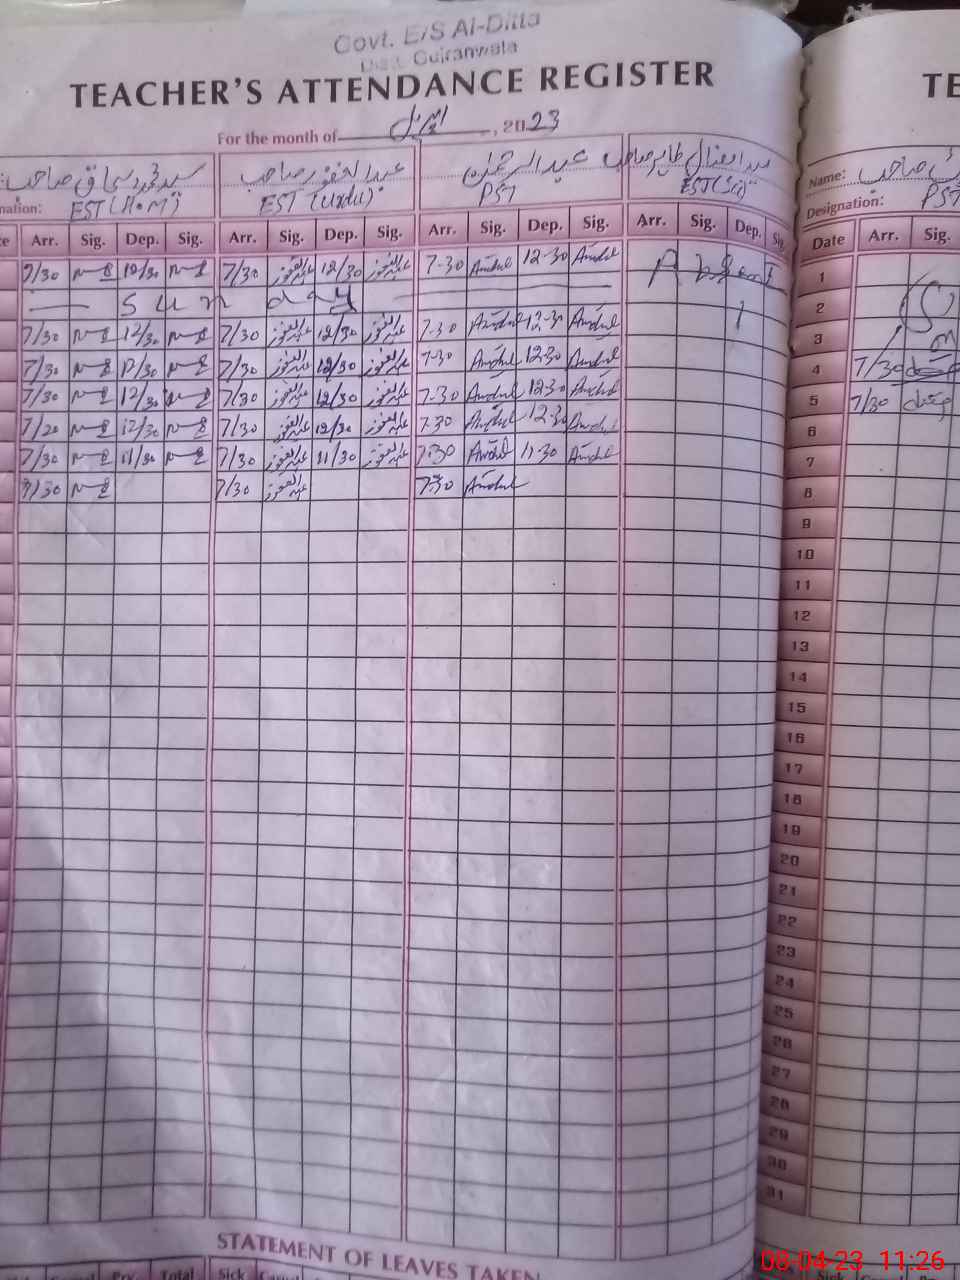 Govt. E/S Al-Ditta
Distt. Gujranwala
TEACHER'S ATTENDANCE REGISTER
TE
For the month of اپریل, 2023
صاحب عبدالغفور صاحب عبدالرحمٰن طاہر صاحب
Name: صاحب
nation: EST (Urdu) PST EST (Sci)
Designation: PST
te Arr. Sig. Dep. Sig. Arr. Sig. Dep. Sig. Arr. Sig. Dep. Sig. Arr. Sig. Dep. Sig.
Date Arr. Sig.
7/30 12/30 7/30 عبدالغفور 12/30 عبدالغفور 7-30 Abdul 12-30 Abdul Absent
1
Sunday
2
7/30 12/30 7/30 عبدالغفور 12/30 عبدالغفور 7-30 Abdul 12-30 Abdul
3
7/30 12/30 7/30 عبدالغفور 12/30 عبدالغفور 7-30 Abdul 12-30 Abdul
4 7/30
7/30 12/30 7/30 عبدالغفور 12/30 عبدالغفور 7-30 Abdul 12-30 Abdul
5 7/30
7/30 12/30 7/30 عبدالغفور 12/30 عبدالغفور 7-30 Abdul 12-30 Abdul
6
7/30 11/30 7/30 عبدالغفور 11/30 عبدالغفور 7-30 Abdul 11-30 Abdul
7
7/30 7/30 عبدالغفور 7-30 Abdul
8
9
10
11
12
13
14
15
16
17
18
19
20
21
22
23
24
25
26
27
28
29
30
31
STATEMENT OF LEAVES TAKEN
Total Sick Casual
08-04-23 11:26